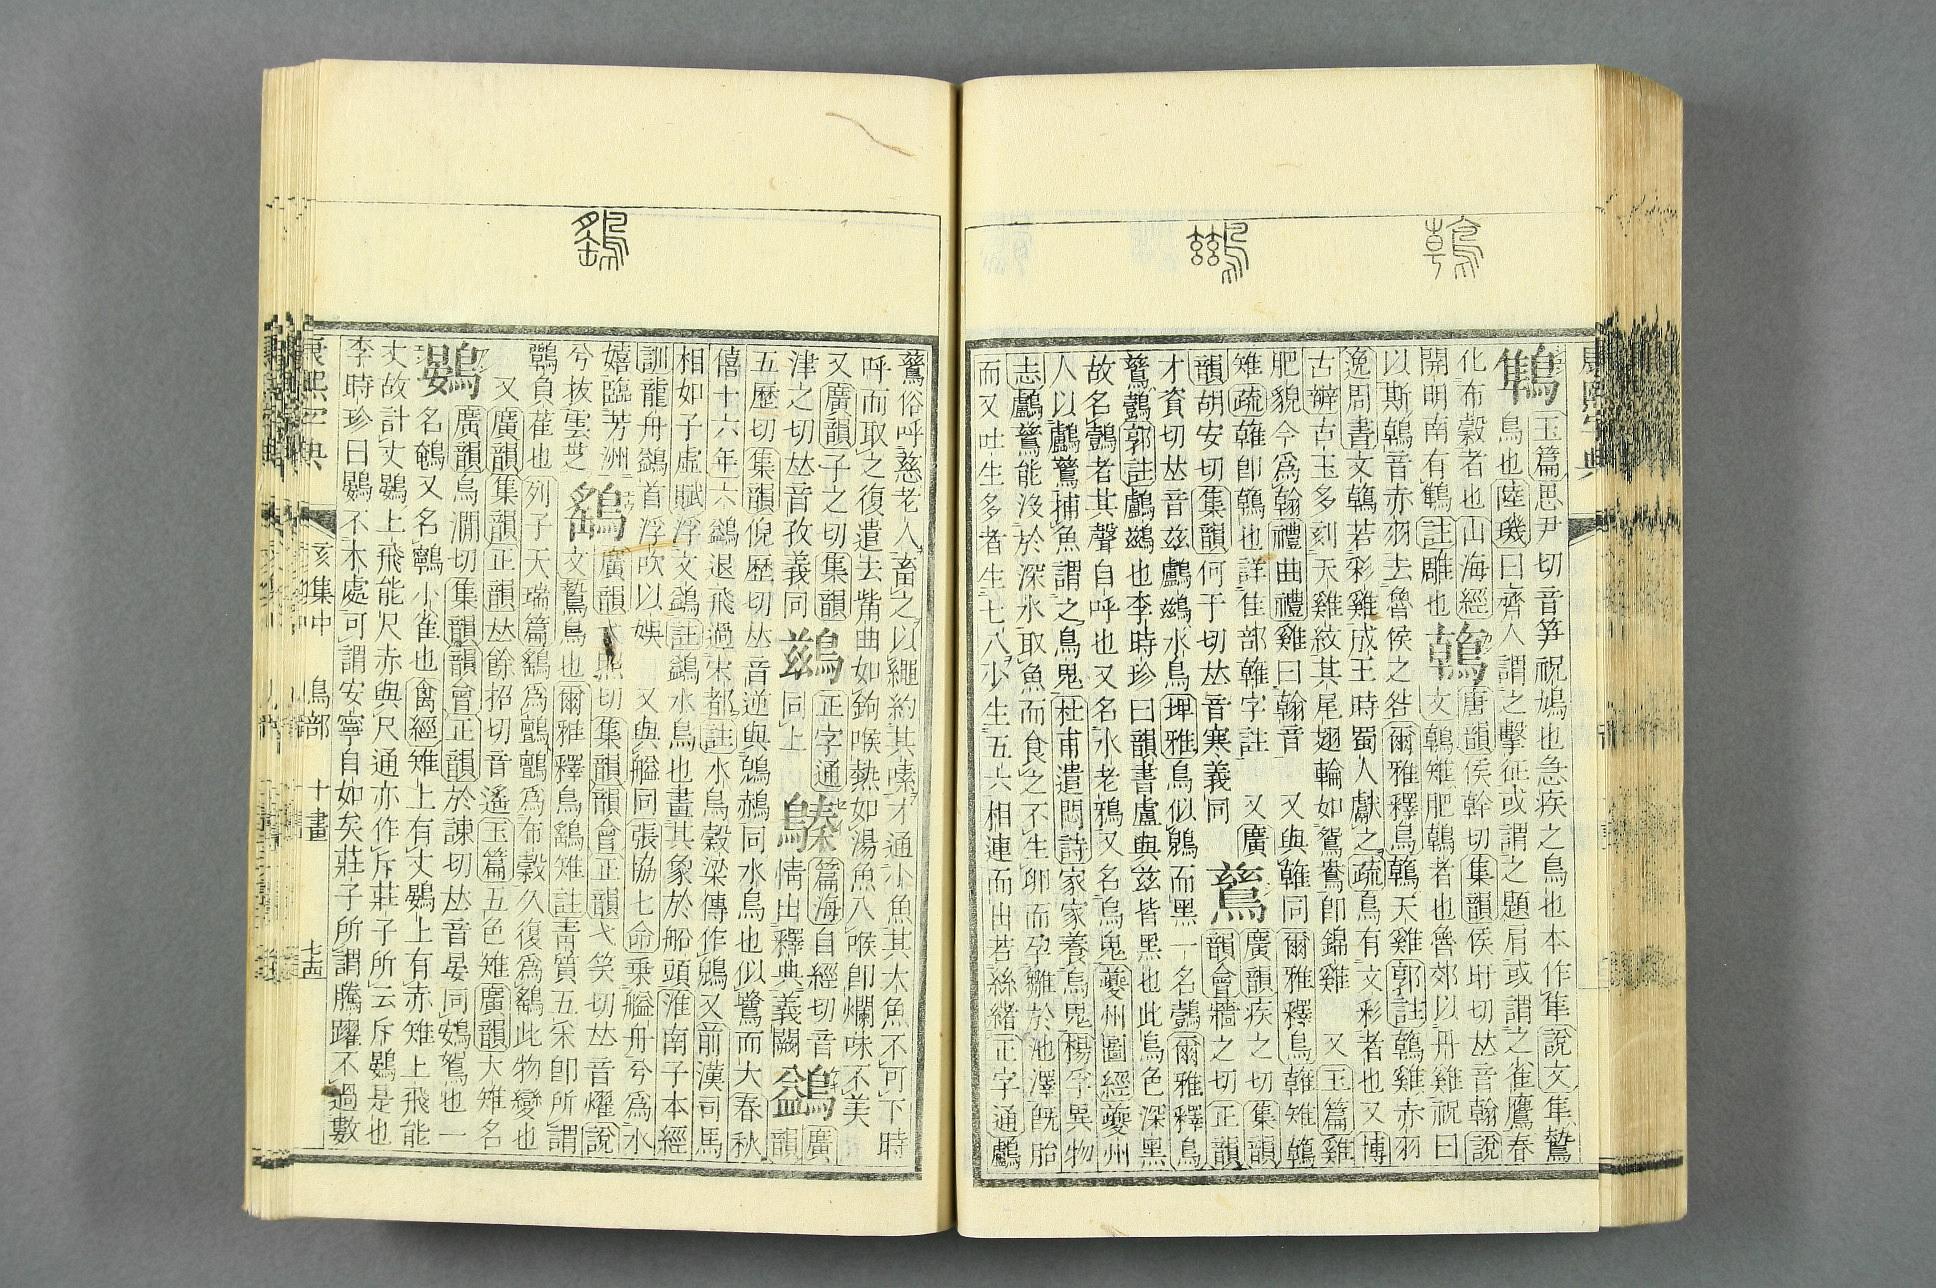 康熙字典
鶽
玉篇思尹切音笋祝鳩也急疾之鳥也本作隼說文隼鷙
鳥也陸璣曰齊人謂之擊征或謂之題肩或謂之雀鷹春
化布穀者也山海經
開明南有鶽註雕也
鶾
唐韻侯幹切集韻侯旰切𠀤音翰說
文鶾雉肥鶾者也魯郊以丹雞祝曰
以斯鶾音赤羽去魯侯之咎爾雅釋鳥鶾天雞郭註鶾雞赤羽
逸周書文鶾若彩雞成王時蜀人獻之疏鳥有文彩者也又博
古辨古玉多刻天雞紋其尾翅輪如鴛鴦卽錦雞 又玉篇雞
肥貌今爲翰禮曲禮雞曰翰音 又與雗同爾雅釋鳥雗雉鶾
雉疏雗卽鶾也詳隹部雗字註 又廣
韻胡安切集韻何干切𠀤音寒義同
鶿
廣韻疾之切集韻
韻會牆之切正韻
才資切𠀤音兹鸕鷀水鳥埤雅鳥似鶂而黑一名鷧爾雅釋鳥
鶿鷧郭註鸕鷀也李時珍曰韻書盧與兹皆黑也此鳥色深黑
故名鷧者其聲自呼也又名水老鴉又名烏鬼夔州圖經夔州
人以鸕鶿捕魚謂之烏鬼杜甫遣悶詩家家養烏鬼楊孚異物
志鸕鶿能沒於深水取魚而食之不生卵而孕雛於池澤旣胎
而又吐生多者生七八少生五六相連而出若絲緒正字通鸕
鶿俗呼慈老人畜之以繩約其嗉才通小魚其大魚不可下時
呼而取之復遣去觜曲如鉤喉熱如湯魚入喉卽爛味不美
又廣韻子之切集韻
津之切𠀤音孜義同
鷀
正字通
同上
篇海自經切音
情出釋典義闕
鷁
廣
韻
五歷切集韻倪歷切𠀤音逆與鶂鷊同水鳥也似鷺而大春秋
僖十六年六鷁退飛過宋都註水鳥穀梁傳作鶂又前漢司馬
相如子虛賦浮文鷁註鷁水鳥也畫其象於船頭淮南子本經
訓龍舟鷁首浮吹以娛 又與艗同張協七命乘艗舟兮爲水
嬉臨芳洲
兮拔雲芝
鷂
廣韻弋照切集韻韻會正韻弋笑切𠀤音燿說
文鷙鳥也爾雅釋鳥鷂雉註靑質五采卽所謂
鷣負雀也列子天瑞篇鷂爲鸇鸇爲布穀久復爲鷂此物變也
又廣韻集韻正韻𠀤餘招切音遙玉篇五色雉廣韻大雉名
鷃
廣韻烏澗切集韻韻會正韻於諫切𠀤音晏同鴳鴽也一
名鵪又名鸋小雀也禽經雉上有丈鷃上有赤雉上飛能
丈故計丈鷃上飛能尺赤與尺通亦作斥莊子所云斥鷃是也
李時珍曰鷃不木處可謂安寧自如矣莊子所謂騰躍不過數
康熙字典 亥集中 鳥部 十畫